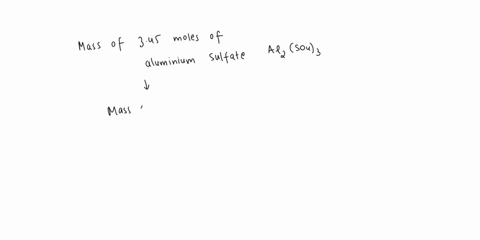 Mass of 3.45 moles of
aluminium sulfate Al2(SO4)3
↓
Mass